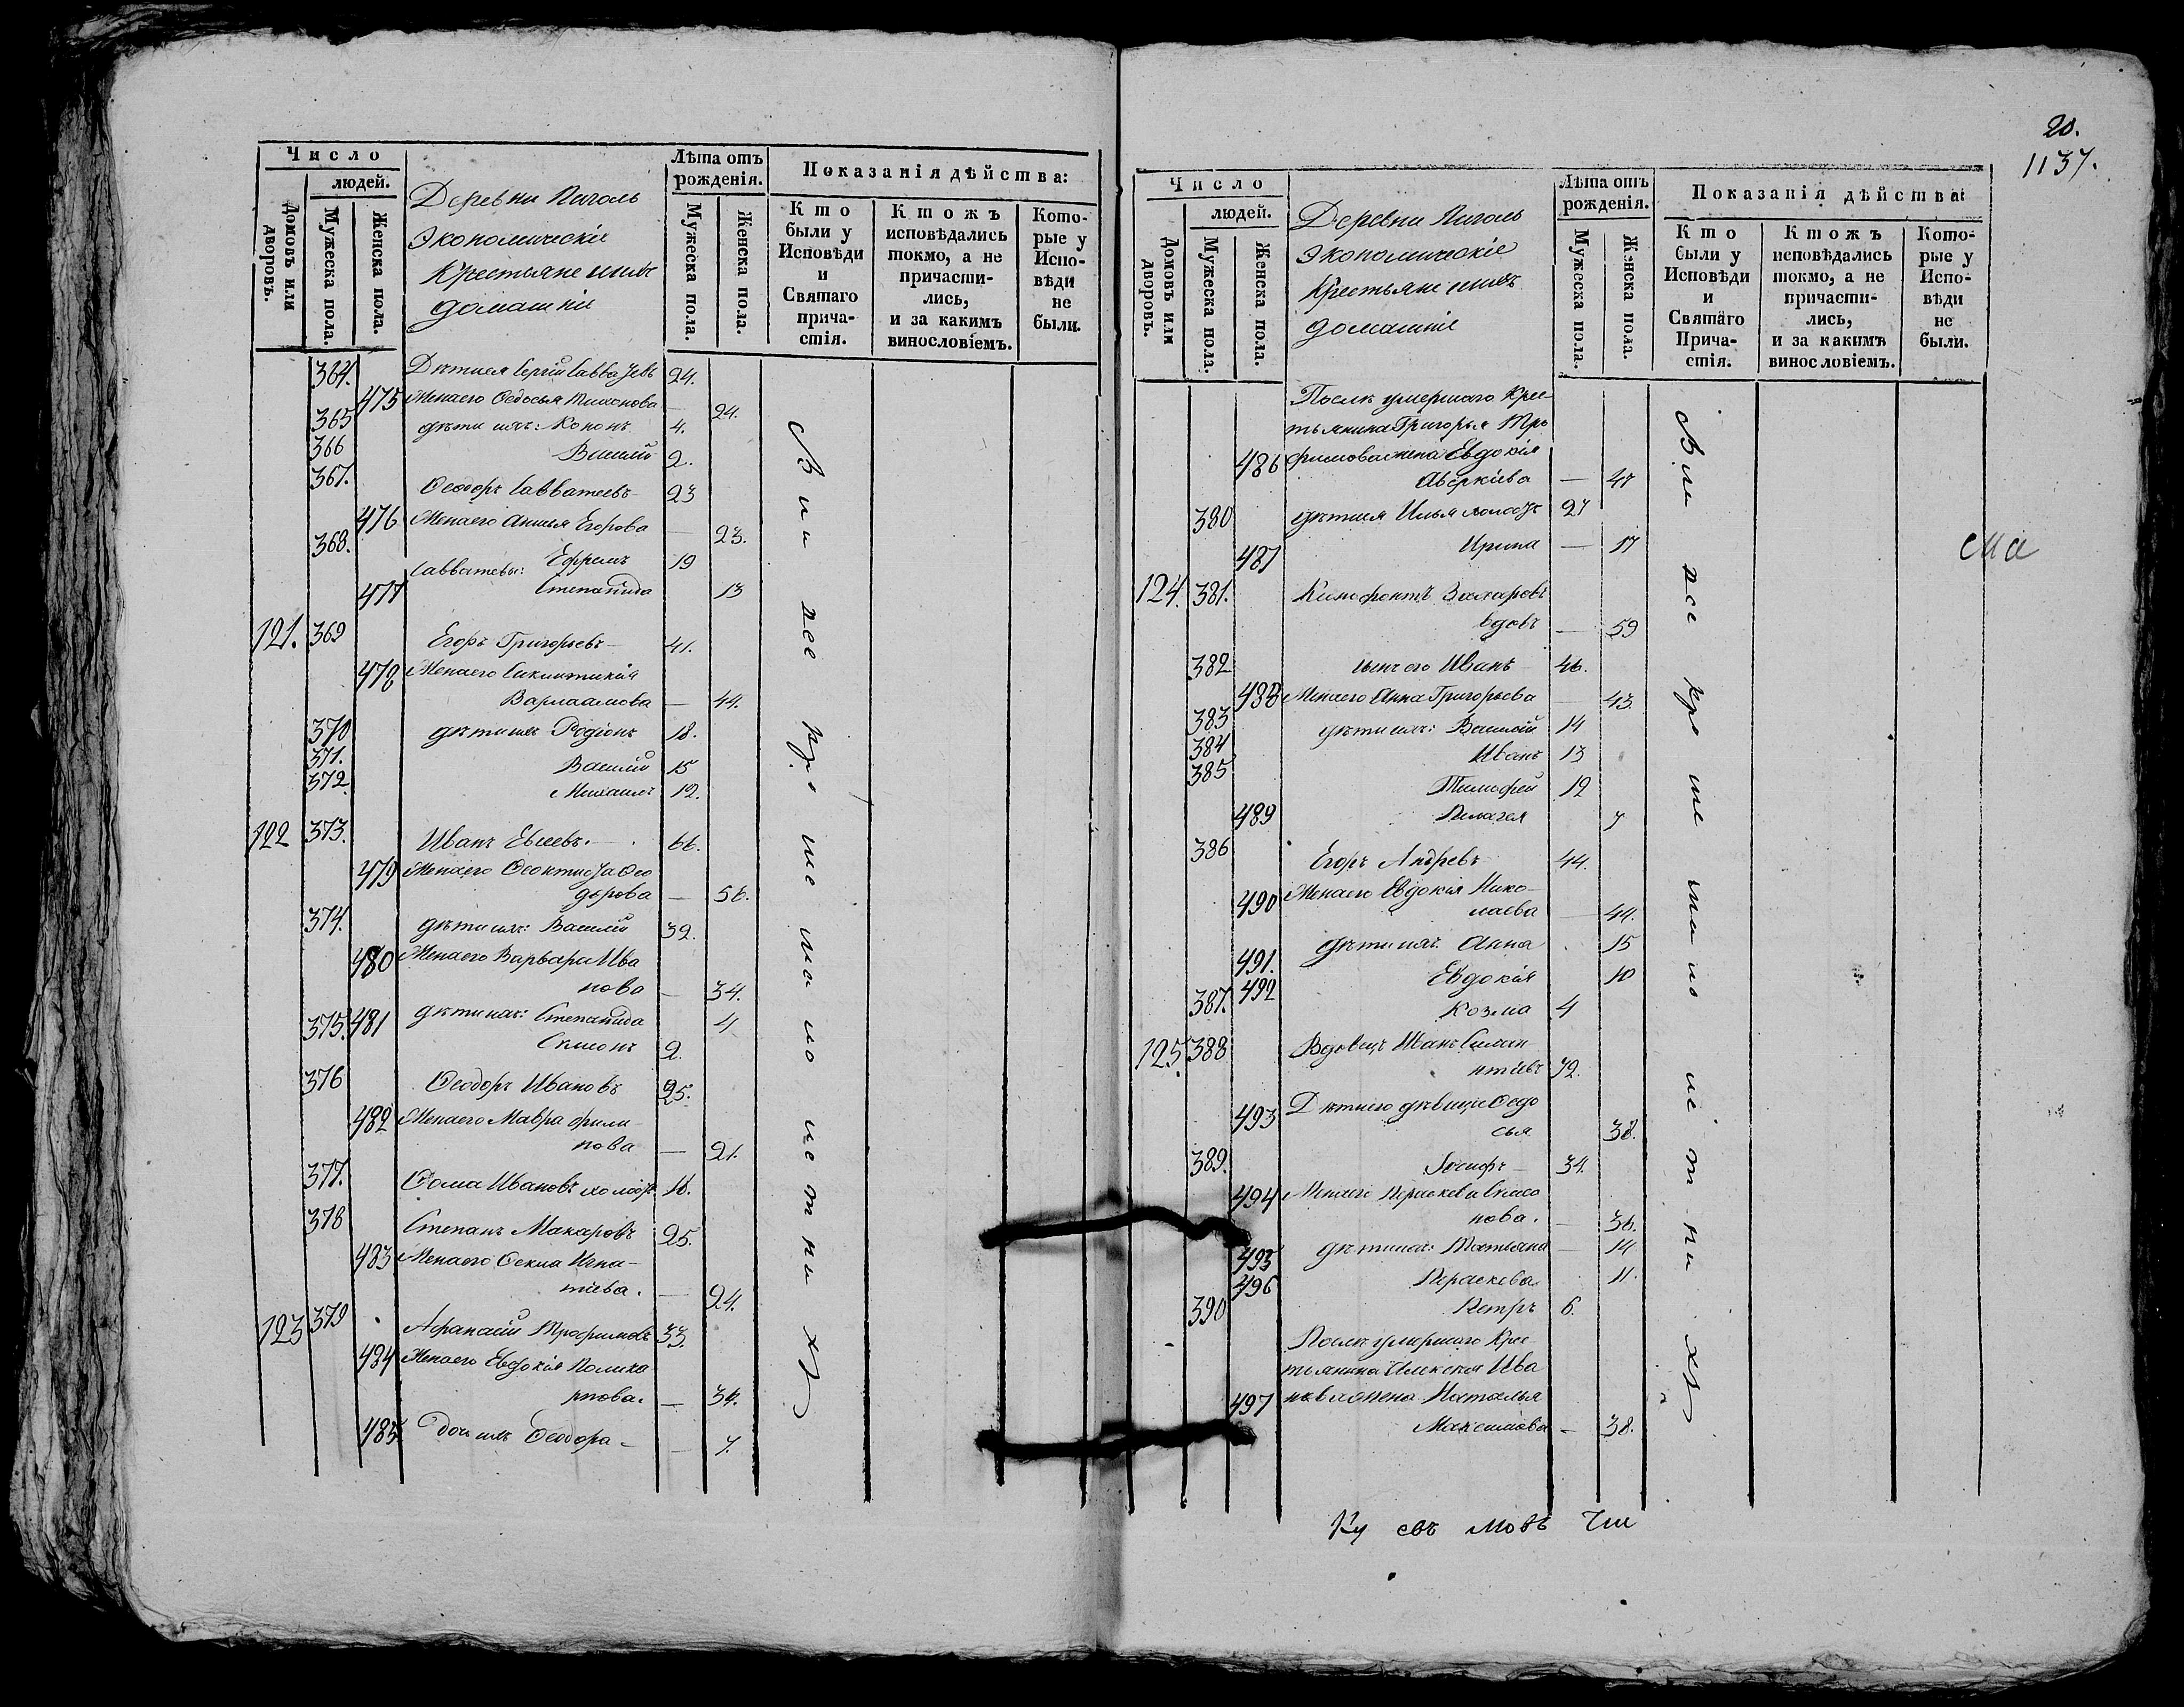 Число
людей.
Домовъ или дворовъ.
Мужеска пола.
Женска пола.
Деревни Пиголь
Экономическіе
Крестьяне ихъ
домашніе
Лѣта отъ рожденія.
Мужеска пола.
Женска пола.
Показанія дѣйства:
Кто были у Исповѣди и Святаго причастія.
Ктожъ исповѣдались токмо, а не причастились, и за какимъ винословіемъ.
Которые у Исповѣди не были.
364. Дѣти ея Сергій Савватеевъ 24.
475 Жена его Ѳедосья Тихонова — 24.
365 дѣти ихъ: Кононъ 4.
366 Василій 2.
367. Ѳеодоръ Савватеевъ 23
476 Жена его Анисья Егорова — 23.
368. Савватеевы: Ефремъ 19
477 Степанида 13
121. 369 Егоръ Григорьевъ 41.
478 Жена его Синклитикія
Варлаамова — 44.
370 дѣти ихъ Родіонъ 18.
371. Василій 15
372. Михаилъ 12.
122 373. Иванъ Евсеевъ. 66.
479 Жена его Ѳеоктиста Ѳео
дорова — 56.
374. дѣти ихъ: Василій 32.
480 Жена его Варвара Ива
нова — 34.
481 дѣти ихъ: Степанида 4
375. Симонъ 2.
376 Ѳеодоръ Ивановъ 25.
482 Жена его Мавра Фили
пова — 21.
377. Ѳома Ивановъ холостъ 16.
378 Степанъ Макаровъ 25.
483 Жена его Ѳекла Игна-
тіева. — 24.
123 379 Афанасій Трофимовъ 33.
484 Жена его Евдокія Полика
рпова. — 34.
485. Дочь ихъ Ѳеодора — 7.
20.
1137.
Число
людей.
Домовъ или дворовъ.
Мужеска пола.
Женска пола.
Деревни Пиголь
Экономическіе
Крестьяне ихъ
домашніе
Лѣта отъ рожденія.
Мужеска пола.
Женска пола.
Показанія дѣйства:
Кто были у Исповѣди и Святаго Причастія.
Ктожъ исповѣдались токмо, а не причастились, и за какимъ винословіемъ.
Которые у Исповѣди не были.
Послѣ умершаго Крес-
тьянина Григорья Тро
486 фимова жена Евдокія
Аверкіева — 47
380 дѣти ея Илья холостъ 27
487 Ирина — 17
124. 381. Ксенофонтъ Захаровъ
вдовъ — 59
382 сынъ его Иванъ 46.
488 Жена его Анна Григорьева — 43.
383 дѣти ихъ: Василій 14
384 Иванъ 13
385 Тимофей 12
489 Пелагея 7
386 Егоръ Андреевъ 44.
490 Жена его Евдокія Нико-
лаева — 44.
491. дѣти ихъ: Анна 15
492 Евдокія 10
387. Козма 4
125. 388 Вдовецъ Иванъ Силан
тіевъ 72.
493 Дѣти его дѣвица Ѳедо
сья 38.
389. Іосифъ — 34.
494 Жена его Параскева Симо
нова. — 36.
495 дѣти ихъ: Татьяна — 14
496 Параскева 11.
390 Петръ 6.
Послѣ умершаго Крес
тьянина Алексея Ива
497 нова жена Наталья
Максимова — 38.